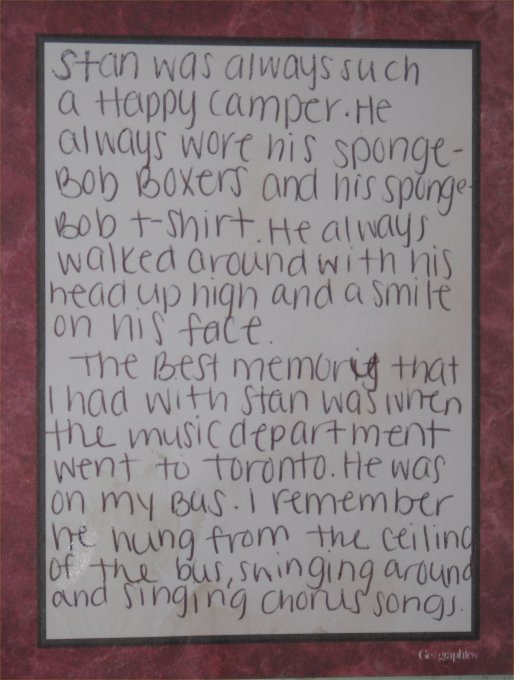 Stan was always such
a Happy Camper. He
always wore his sponge-
Bob Boxers and his sponge-
Bob t-shirt. He always
walked around with his
head up high and a smile
on his face.
The Best memory that
I had with Stan was when
the music department
went to Toronto. He was
on my Bus. I remember
he hung from the ceiling
of the bus, swinging around
and singing chorus songs.
Geographics